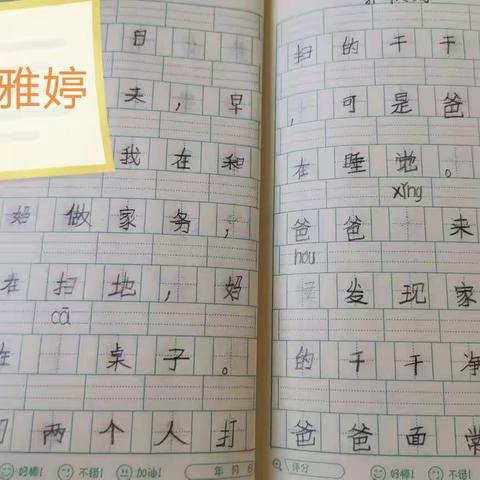 雅婷
日
来，早
我在和
妈做家务，
在扫地，妈
cā
在 桌子。
们两个人打
好棒！ 不错！ 加油！
年 月 日
扫的干干
，可是爸
在睡地。
xǐng
爸爸 来
hou
发现家
的干干净
爸爸面常
评分
好棒！ 不错！